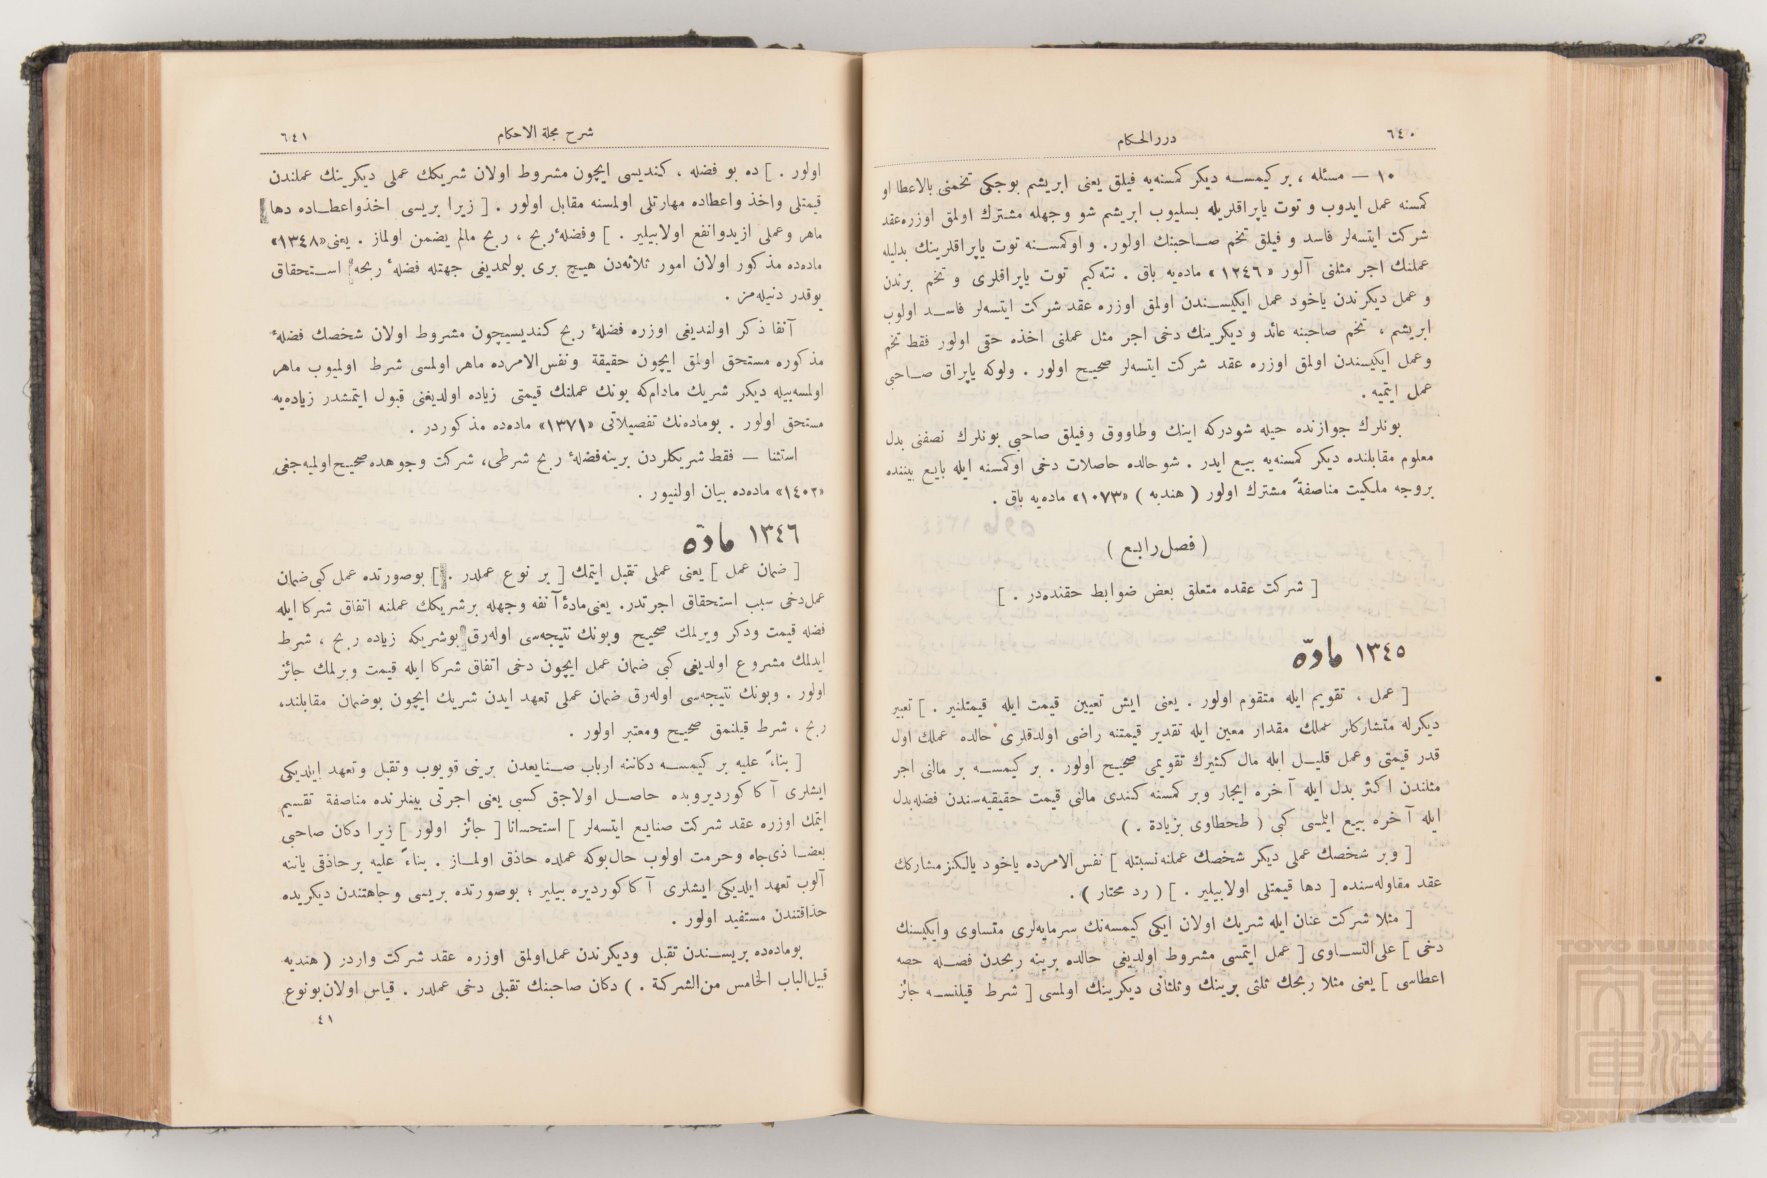 ٦٤٠
دررالحكام
١٠ — مسئله ، بر كيمسه ديكر كمسنه‌يه فيلق يعنى ابريشم بوجكى تخمنى بالاعطا او
كمسنه عمل ايدوب و توت ياپراقلريله بسليوب ابريشم شو وجهله مشترك اولمق اوزره‌عقد
شركت ايتسه‌لر فاسد و فيلق تخم صاحبنك اولور. و اوكمسنه توت ياپراقلرينك بدليله
عملنك اجر مثلنى آلور «١٣٤٦» ماده‌يه باق . نته‌كيم توت ياپراقلرى و تخم برندن
و عمل ديكرندن ياخود عمل ايكيسندن اولمق اوزره عقد شركت ايتسه‌لر فاسد اولوب
ابريشم ، تخم صاحبنه عائد و ديكرينك دخى اجر مثل عملنى اخذه حقى اولور فقط تخم
وعمل ايكيسندن اولمق اوزره عقد شركت ايتسه‌لر صحيح اولور . ولوكه ياپراق صاحبى
عمل ايتميه .
بونلرك جوازنده حيله شودركه اينك وطاووق وفيلق صاحبى بونلرك نصفنى بدل
معلوم مقابلنده ديكر كمسنه‌يه بيع ايدر . شو حالده حاصلات دخى اوكمسنه ايله بايع بيننده
بروجه ملكيت مناصفةً مشترك اولور ( هنديه ) «١٠٧٣» ماده‌يه باق .
( فصل رابع )
[ شركت عقده متعلق بعض ضوابط حقنده‌در . ]
١٣٤٥ مادّه
[ عمل ، تقويم ايله متقوم اولور . يعنى ايش تعيين قيمت ايله قيمتلنير . ] تعبير
ديكرله متشاركلر عملك مقدار معين ايله تقدير قيمتنه راضى اولدقلرى حالده عملك اول
قدر قيمتى وعمل قليل ايله مال كثيرك تقويمى صحيح اولور . بر كيمسه بر مالنى اجر
مثلندن اكثر بدل ايله آخره ايجار وبر كمسنه كندى مالنى قيمت حقيقيه‌سندن فضله‌بدل
ايله آخره بيع ايلمسى كبى ( طحطاوى بزيادة . )
[ وبر شخصك عملى ديكر شخصك عملنه‌نسبتله ] نفس‌الامرده ياخود يالكز مشاركك
عقد مقاوله‌سنده [ دها قيمتلى اولابيلير . ] ( رد محتار ) .
[ مثلا شركت عنان ايله شريك اولان ايكى كيمسه‌نك سرمايه‌لرى متساوى وايكيسنك
دخى ] على‌التساوى [ عمل ايتمسى مشروط اولديغى حالده برينه ربحدن فضله حصه
اعطاسى ] يعنى مثلا ربحك ثلثى برينك وثلثانى ديكرينك اولمسى [ شرط قيلنسه جائز
٦٤١
شرح مجلة الاحكام
اولور . ] ده بو فضله ، كنديسى ايچون مشروط اولان شريكك عملى ديكرينك عملندن
قيمتلى واخذ واعطاده مهارتلى اولمسنه مقابل اولور . [ زيرا بريسى اخذ‌واعطاده دها
ماهر وعملى ازيدوانفع اولابيلير . ] وفضلهٔ‌ربح ، ربح مالم يضمن اولماز . يعنى «١٣٤٨»
ماده‌ده مذكور اولان امور ثلاثه‌دن هيچ برى بولنمديغى جهتله فضلهٔ ربحه استحقاق
يوقدر دنيله‌مز .
آنفا ذكر اولنديغى اوزره فضلهٔ ربح كنديسيچون مشروط اولان شخصك فضلهٔ
مذكوره مستحق اولمق ايچون حقيقة ونفس‌الامرده ماهر اولمسى شرط اولميوب ماهر
اولمسه‌بيله ديكر شريك مادام‌كه بونك عملنك قيمتى زياده اولديغنى قبول ايتمشدر زياده‌يه
مستحق اولور . بوماده‌نك تفصيلاتى «١٣٧١» ماده‌ده مذكوردر .
استثنا — فقط شريكلردن برينه‌فضلهٔ ربح شرطى، شركت وجوهده‌صحيح‌اولميه‌جغى
«١٤٠٢» ماده‌ده بيان اولنيور .
١٣٤٦ مادّه
[ ضمان عمل ] يعنى عملى تقبل ايتمك [ بر نوع عملدر . ] بوصورتده عمل كبى ضمان
عمل‌دخى سبب استحقاق اجرتدر. يعنى‌مادهٔ آنفه وجهله برشريكك عملنه اتفاق شركا ايله
فضله قيمت ودكر ويرلمك صحيح وبونك نتيجه‌سى اوله‌رق بوشريكه زياده ربح ، شرط
ايدلمك مشروع اولديغى كبى ضمان عمل ايچون دخى اتفاق شركا ايله قيمت ويرلمك جائز
اولور . وبونك نتيجه‌سى اوله‌رق ضمان عملى تعهد ايدن شريك ايچون بوضمان مقابلنده
ربح ، شرط قيلنمق صحيح ومعتبر اولور .
[ بناءً عليه بر كيمسه دكاننه ارباب صنايعدن برينى قويوب وتقبل وتعهد ايلديكى
ايشلرى آكا كورديروبده حاصل اولاجق كسبى يعنى اجرتى بينلرنده مناصفة تقسيم
ايتمك اوزره عقد شركت صنايع ايتسه‌لر ] استحسانا [ جائز اولور ] زيرا دكان صاحبى
بعضا ذى‌جاه وحرمت اولوب حال‌بوكه عملده حاذق اولماز . بناءً عليه برحاذقى ياننه
آلوب تعهد ايلديكى ايشلرى آكا كورديره بيلير ؛ بوصورتده بريسى وجاهتندن ديكريده
حذاقتندن مستفيد اولور .
بوماده‌ده بريسندن تقبل وديكرندن عمل‌اولمق اوزره عقد شركت واردر ( هنديه
قبيل‌الباب الخامس من‌الشركة . ) دكان صاحبنك تقبلى دخى عملدر . قياس اولان‌بونوع
٤١
TOYO BUNKO
東洋文庫
TOYO BUNKO